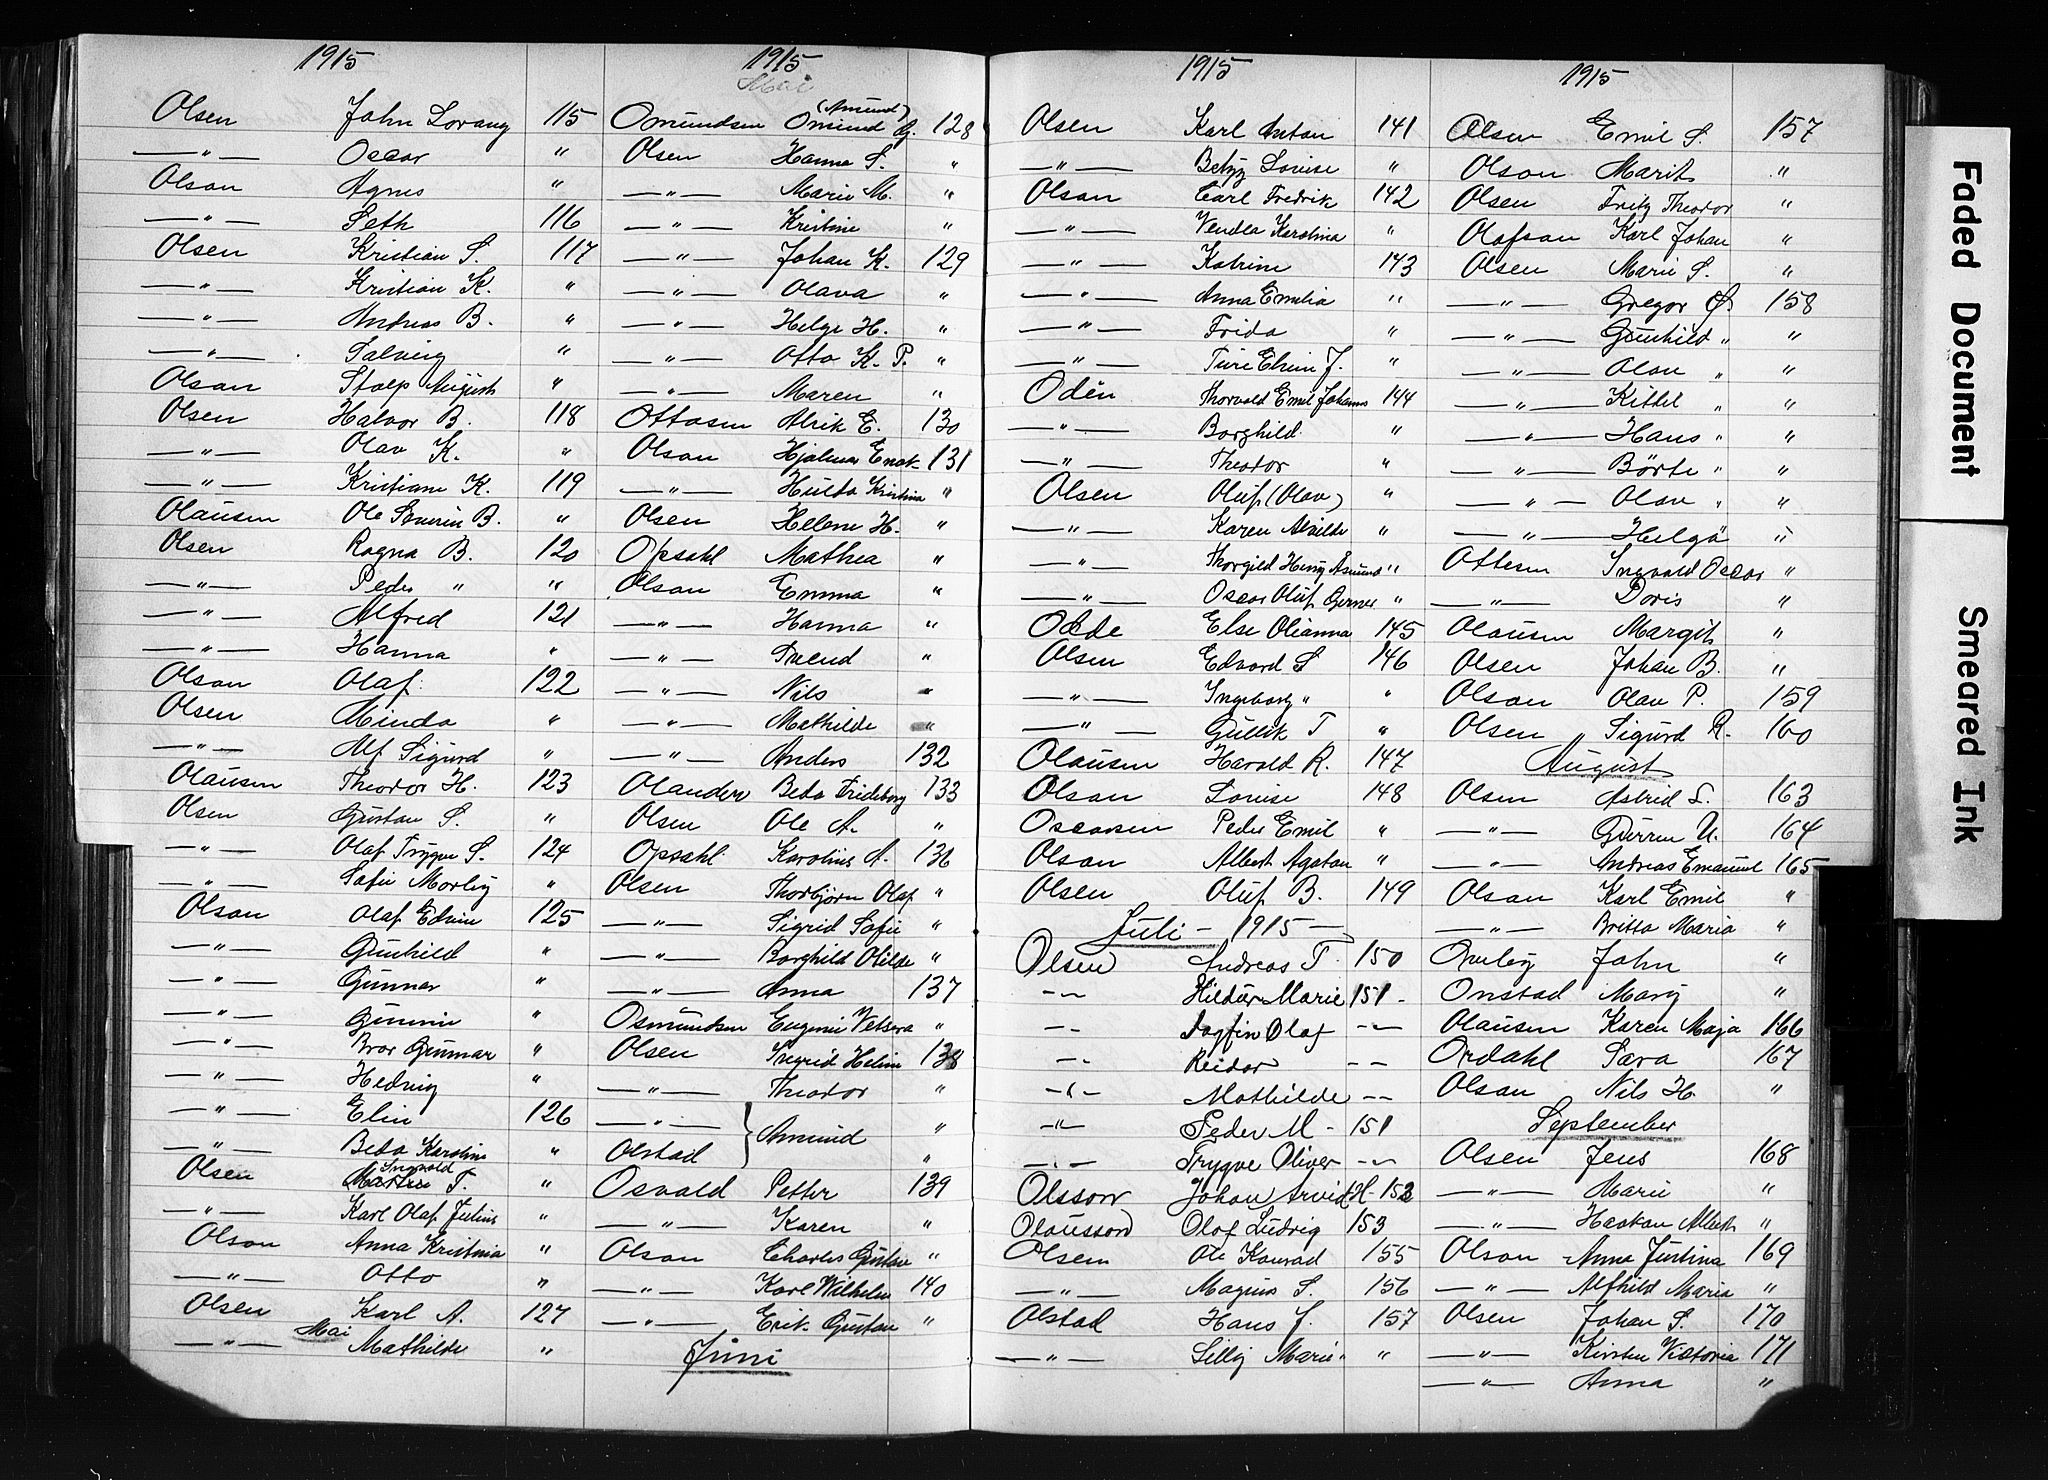 1915
Olsen John Lorang 115
—"— Oscar "
Olson Agnes "
—"— Seth 116
Olsen Kristian S. 117
—"— Kristian K. "
—"— Andreas B. "
—"— Solveig "
Olson Staep August "
Olsen Halvor B. 118
—"— Olav K. "
—"— Kristiane K. 119
Olausen Ole Severin B. "
Olsen Ragna B. 120
—"— Peder " "
—"— Alfred 121
—"— Hanna "
Olson Olaf 122
Olsen Minda "
—"— Alf Sigurd "
Olausen Theodor H. 123
Olsen Gustav S. "
—"— Olaf Trygve S. 124
—"— Sofie Marley "
Olson Olaf Edvin 125
—"— Gunhild "
—"— Gunnar "
—"— Gunvin "
—"— Bror Gunnar "
—"— Hedvig "
—"— Elin 126
—"— Beda Karolina "
Olsen Ingvald Martin T. "
—"— Karl Olaf Julius "
Olson Anna Kristina "
—"— Otto "
Olsen Karl A. 127
Mai
—"— Mathilde "
1915
Mai
(Amund)
Omundsen Omund G. 128
Olsen Hanna S. "
—"— Marie M. "
—"— Kristine "
—"— Johan K. 129
—"— Olava "
—"— Helge H. "
—"— Otto K. P. "
—"— Maren "
Ottosen Alrik E. 130
Olson Hjalmar Enok 131
—"— Hulda Kristina "
Olsen Helene H. "
Opsahl Mathea "
Olson Emma "
—"— Hanna "
—"— Svend "
—"— Nils "
—"— Mathilde "
—"— Anders 132
Olander Beda Frideborg 133
Olsen Ole A. "
Opsahl Karolius A. 136
Olsen Thorbjørn Olaf "
—"— Sigrid Sofie "
—"— Borghild Otilde "
—"— Anna 137
Osmundsen Eugenie Vetsera "
Olsen Ingrid Helene 138
—"— Theodor "
—"— } Amund "
Olstad "
Osvald Petter 139
—"— Karen "
Olson Charles Gustav "
—"— Karl Wilhelm 140
—"— Erik Gustav "
Juni
1915
Olsen Karl Anton 141
—"— Betzy Louise "
Olson Carl Fredrik 142
—"— Vendla Karolina "
—"— Katrine 143
—"— Anna Emilia "
—"— Frida "
—"— Ture Elvin J. "
Odén Thorvald Emil Johannes 144
—"— Borghild "
—"— Theodor "
Olsen Oluf (Olav) "
—"— Karen Alvilde "
—"— Thorgild Henry Asmund "
—"— Oscar Oluf Gerner "
Odde Else Olianna 145
Olsen Edvard S 146
—"— Ingeborg " "
—"— Gullik T "
Olausen Harald R. 147
Olson Louise 148
Oscarsen Peder Emil "
Olson Albert Agaton "
Olsen Oluf B. 149
Juli - 1915 -
Olsen Andreas T. 150
-"- Hildur Marie 151 -
-"- Dagfin Olaf -"-
-"- Reidar --
-"- Mathilde --
-"- Peder M - 151
-"- Trygve Oliver -"-
Olsson Johan Arvid H - 152
Olausson Olof Ludvig 153
Olsen Ole Konrad 155
—"— Magnus S. 156
Olstad Hans J. 157
—"— Lilly Marie "
1915
Olsen Emil S. 157
Olson Marit "
Olsen Fritz Theodor "
Olofson Karl Johan "
Olsen Marie S. "
—"— Gregor Ø. 158
—"— Gunhild " "
—"— Olav " "
—"— Kittel " "
—"— Hans " "
—"— Börte " "
—"— Olav " "
—"— Helgö "
Ottesen Ingvald Oscar "
—"— Doris "
Olausen Margit "
Olsen Johan B. "
Olson Olav P. 159
Olsen Sigurd R. 160
August
Olsen Astrid L. 163
—"— Gurren U. 164
—"— Andreas Emanuel 165
Olson Karl Emil "
—"— Britta Maria "
Onley John "
Onstad Mary "
Olausen Karen Maja 166
Ordahl Sara 167
Olson Nils H. "
September
Olsen Jens 168
—"— Marie "
—"— Haakon Albert "
Olson Anna Justina 169
—"— Alfhild Maria "
Olsen Johan S. 170
—"— Kirsten Victoria 171
—"— Anna "
Faded Document
Smeared Ink